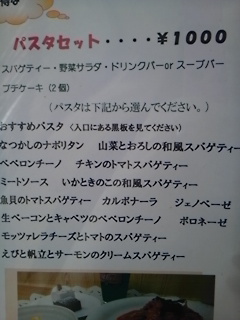 得な
パスタセット・・・・￥1000
スパゲティー・野菜サラダ・ドリンクバーor スープバー
プチケーキ（２個）
（パスタは下記から選んでください。）
おすすめパスタ （入口にある黒板を見てください）
なつかしのナポリタン 山菜とおろしの和風スパゲティー
ペペロンチーノ チキンのトマトスパゲティー
ミートソース いかときのこの和風スパゲティー
魚貝のトマトスパゲティー カルボナーラ ジェノベーゼ
生ベーコンとキャベツのペペロンチーノ ボロネーゼ
モッツァレラチーズとトマトのスパゲティー
えびと帆立とサーモンのクリームスパゲティー